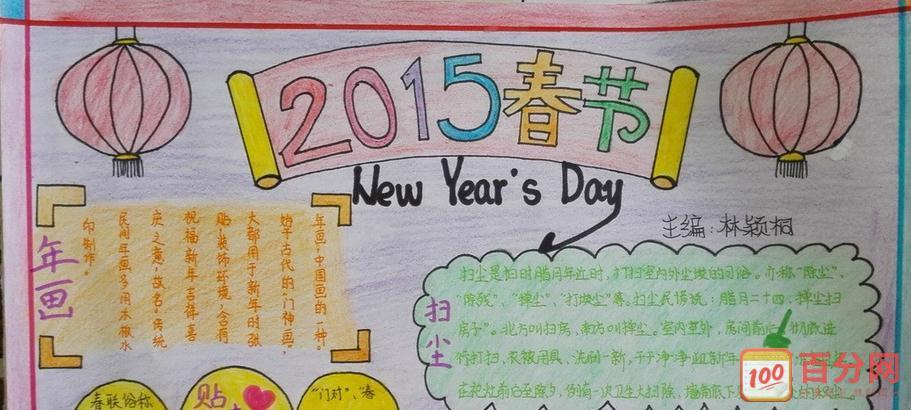 2015春节
New Year's Day
主编：林颖桐
年画
年画，中国画的一种。
始于古代的"门神画"，
大都用于新年时张
贴，装饰环境，含有
祝福新年吉祥喜
庆之意，故名。传统
民间年画多用木板水
印制作。
扫尘
扫尘是扫时腊月年近时，打扫室内外尘埃的习俗。亦称"除尘"、
"除残"、"掸尘"、"打埃尘"等。扫尘民谚说：腊月二十四，掸尘扫
房子"。北方叫扫房，南方叫掸尘。室内室外，房间前后，彻底进
行打扫，衣被用具，洗刷一新，干干净净迎新年
在祀灶前后至除夕，
春联俗称
贴
"门对"、"春
100
百分网